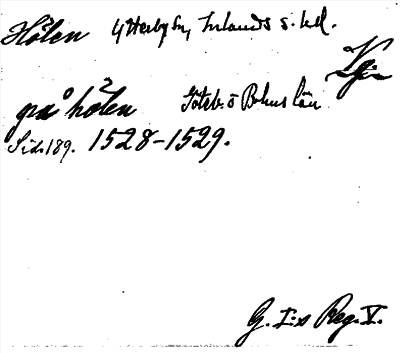 Hòlen Ytterby sn, Inlands s. hd.
Vg:
på hòlen Göteb. o Bohus län
Sid. 189. 1528-1529.
G. I:s Reg. V.